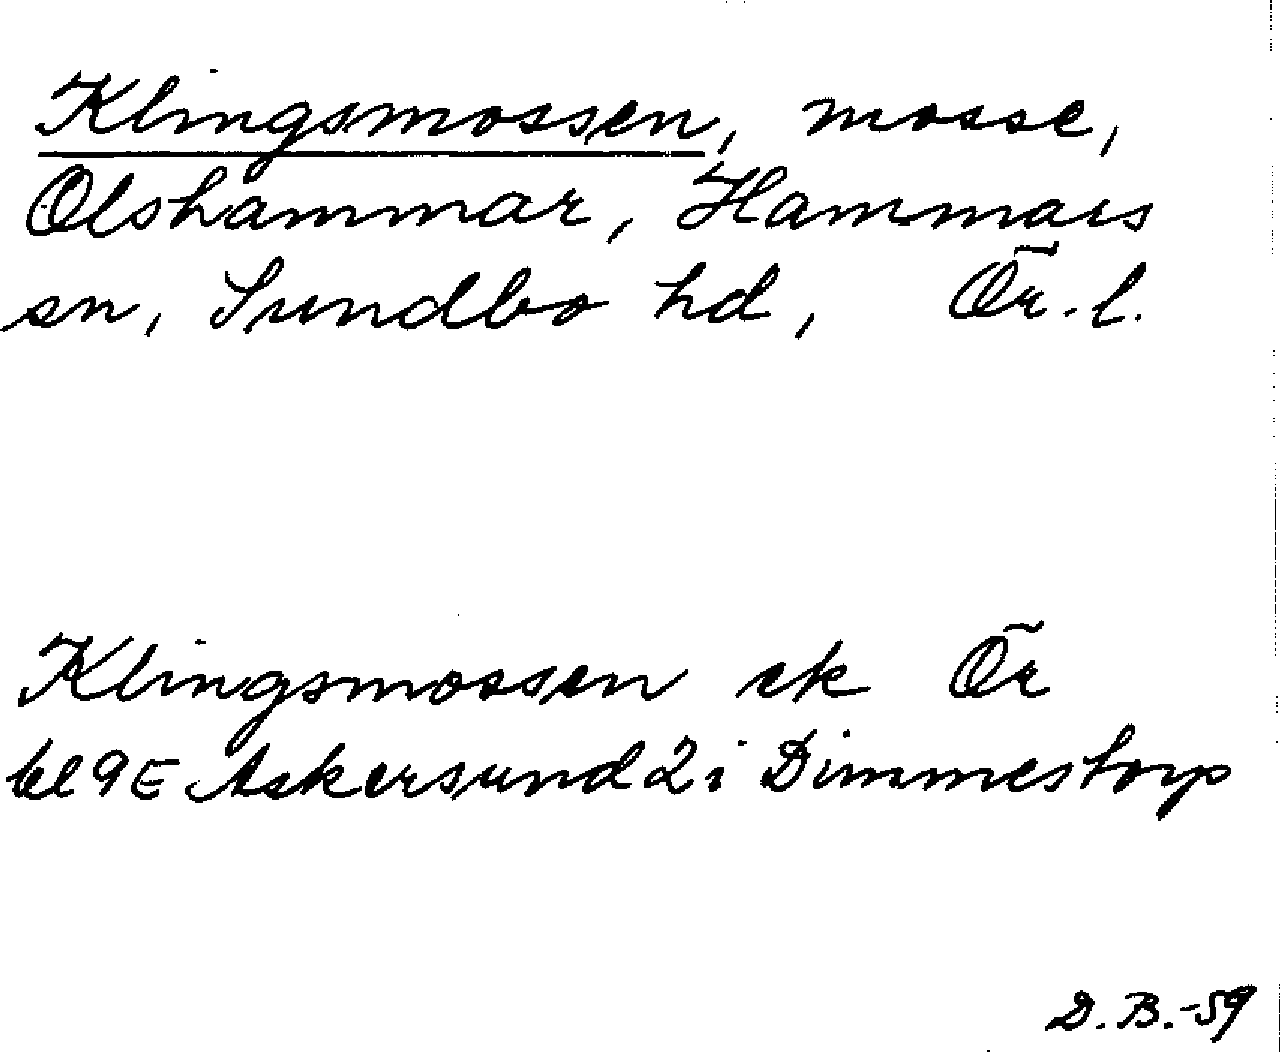 Klingsmossen, mosse,
Olshammar, Hammars
sn, Sundbo hd, Ör. l.
Klingsmossen ek Ör
bl 9E Askersund 2 i Dimmestorp
D. B. -59